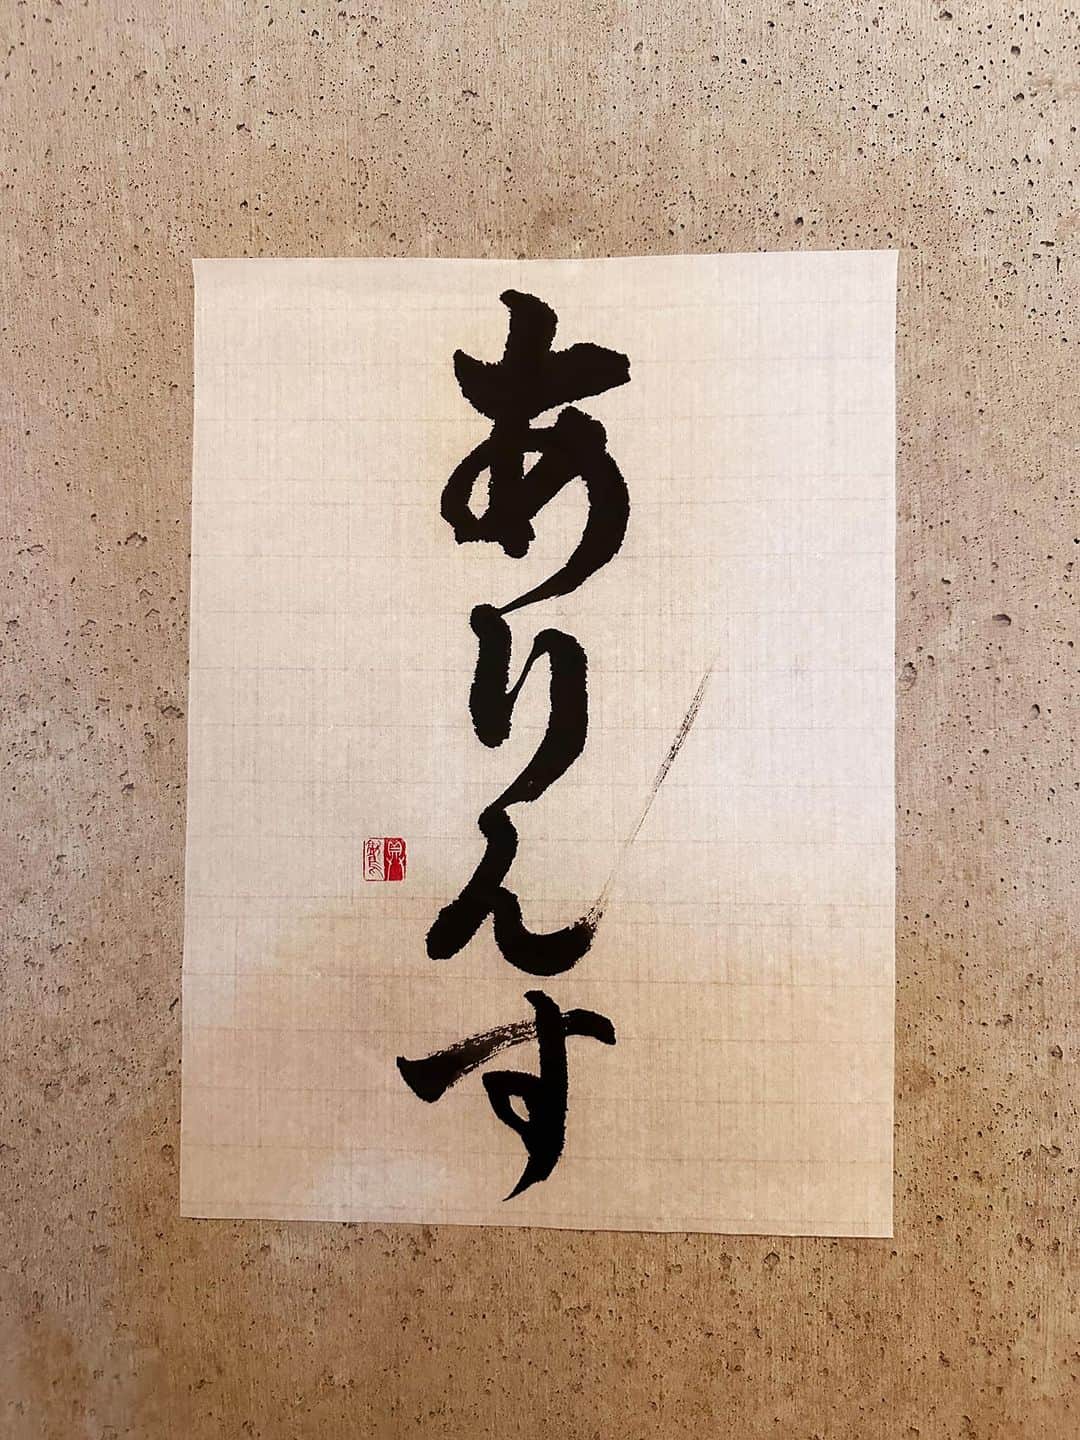 ありんす